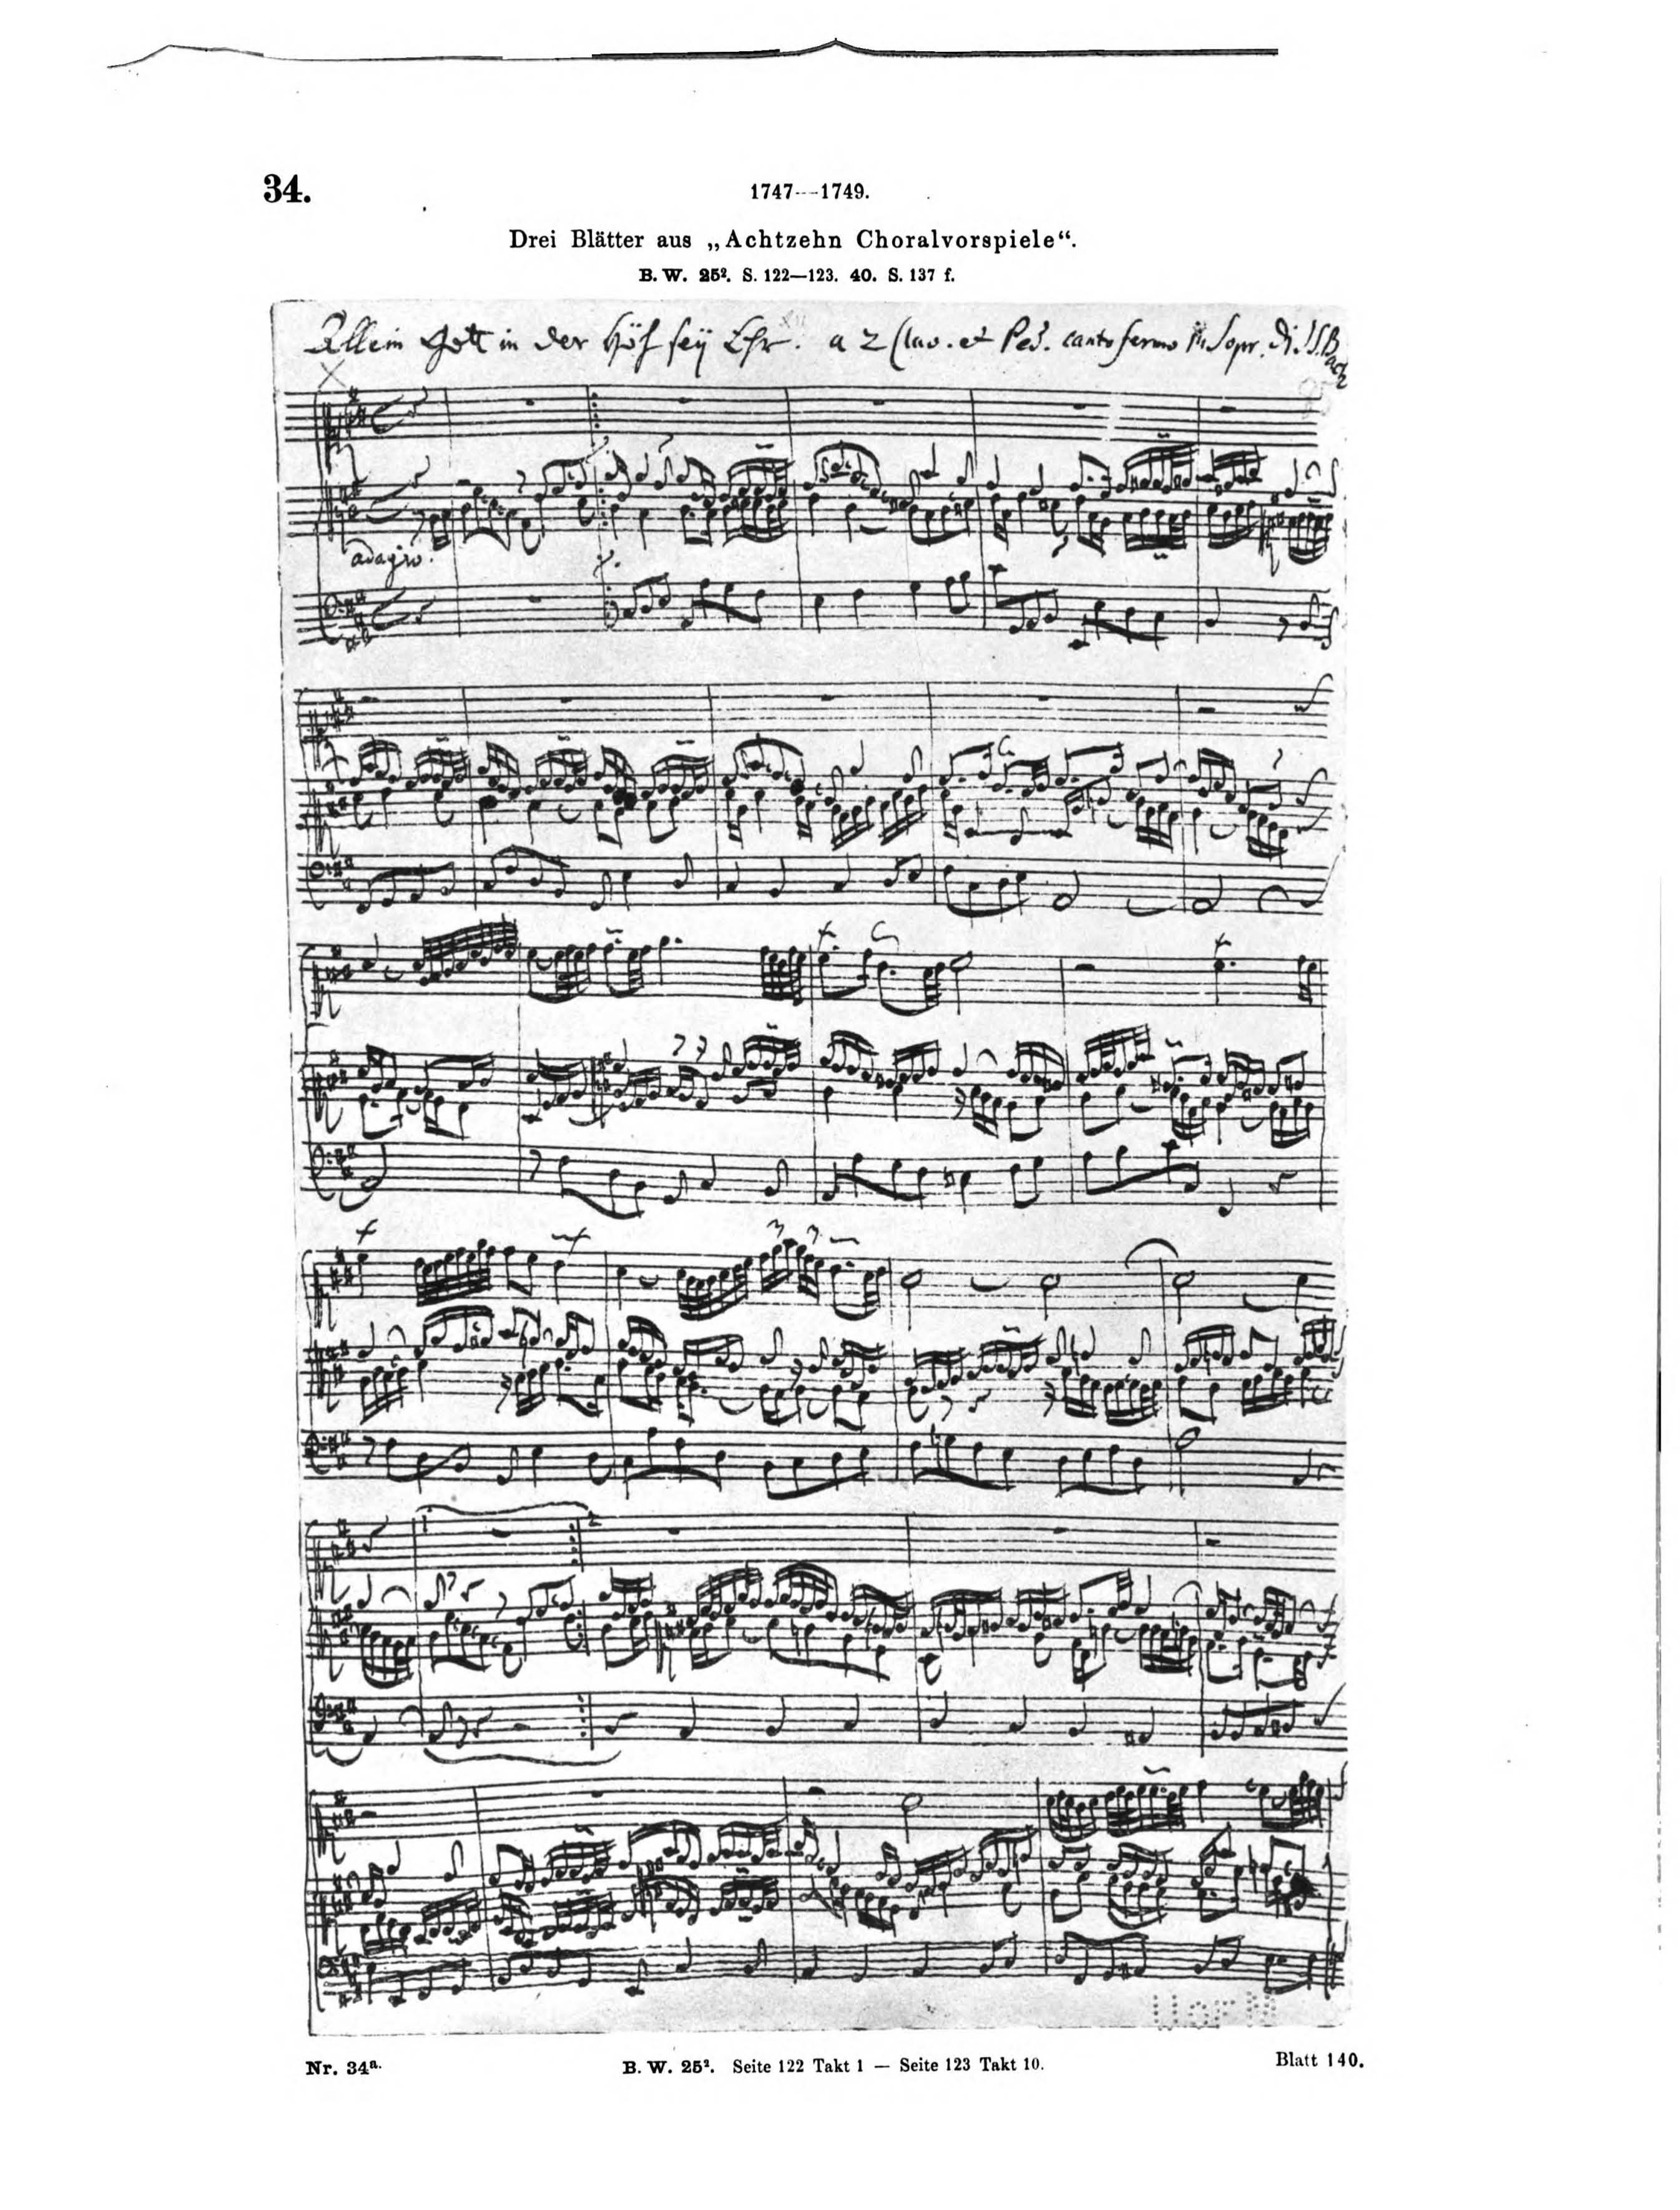 34.
1747—1749.
Drei Blätter aus „Achtzehn Choralvorspiele“.
B. W. 25². S. 122—123. 40. S. 137 f.
Allein Gott in der Höh sey Ehr. a 2 Clav. et Ped. canto fermo in Sopr. di J. S. Bach
adagio.
U OF M
Nr. 34a.
B. W. 25². Seite 122 Takt 1 — Seite 123 Takt 10.
Blatt 140.